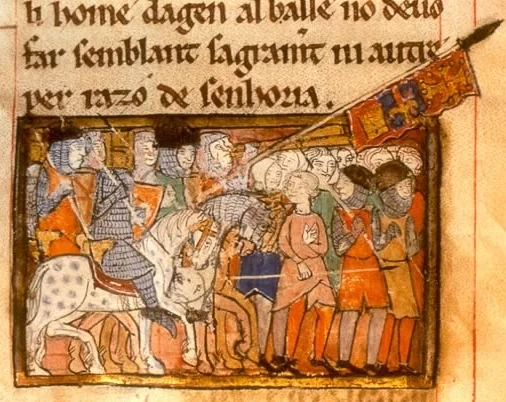 li home dagen al baile no deuo
far semblant sagramt ni autre
per razo de senhoria.